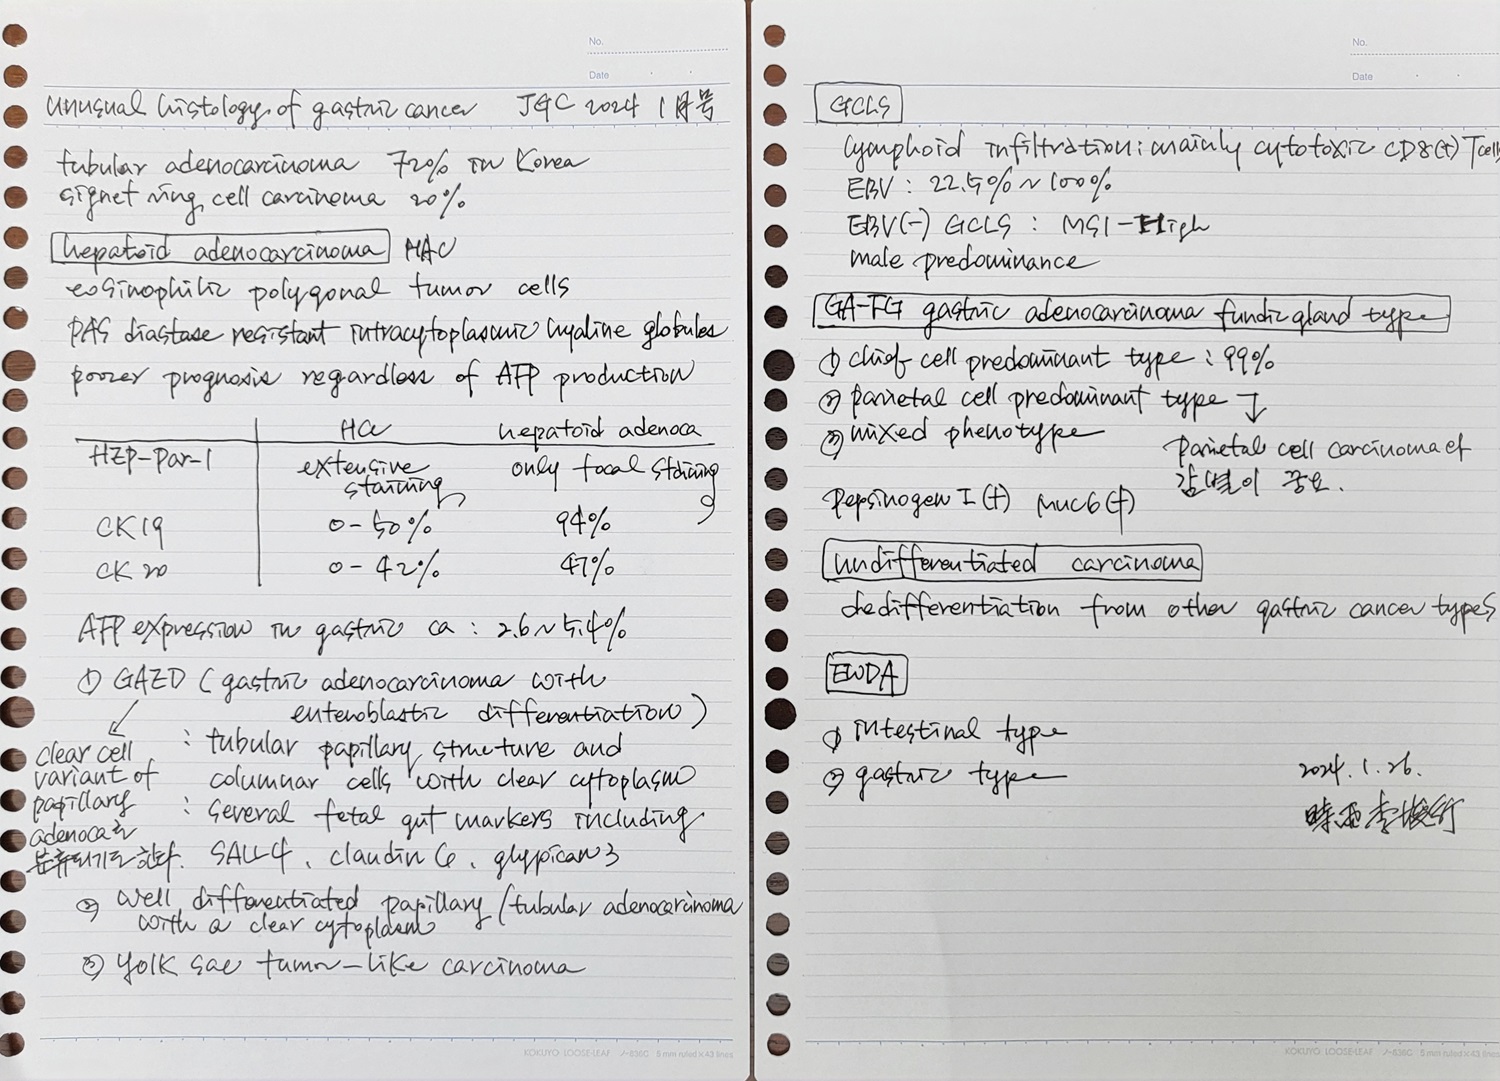 No.
Date
unusual histology of gastric cancer JGC 2024 1月号
tubular adenocarcinoma 72% in Korea
signet ring cell carcinoma 20%
hepatoid adenocarcinoma HAC
eosinophilic polygonal tumor cells
PAS diastase resistant intracytoplasmic hyaline globules
poorer prognosis regardless of AFP production
HCC hepatoid adenoca
HEP-Par-1 extensive staining only focal staining
CK19 0-50% 94%
CK20 0-42% 47%
AFP expression in gastric ca : 2.6~5.4%
① GAED (gastric adenocarcinoma with
enteroblastic differentiation)
clear cell
variant of
papillary
adenoca로
분류되기도 한다.
: tubular papillary structure and
columnar cells with clear cytoplasm
: several fetal gut markers including
SALL4, claudin 6, glypican 3
② well differentiated papillary/tubular adenocarcinoma
with a clear cytoplasm
③ yolk sac tumor-like carcinoma
KOKUYO LOOSE-LEAF ノ-836C 5 mm ruled×43 lines
No.
Date
GCLS
lymphoid infiltration: mainly cytotoxic CD8(+) T cell
EBV : 22.5%~100%
EBV(-) GCLS : MSI-High
male predominance
GA-FG gastric adenocarcinoma fundic gland type
① chief cell predominant type : 99%
② parietal cell predominant type
③ mixed phenotype
parietal cell carcinoma와
감별이 중요.
Pepsinogen I (+) MUC6(+)
undifferentiated carcinoma
dedifferentiation from other gastric cancer types
EWDA
① intestinal type
② gastric type
2024.1.26.
KOKUYO LOOSE-LEAF ノ-836C 5 mm ruled×43 lines